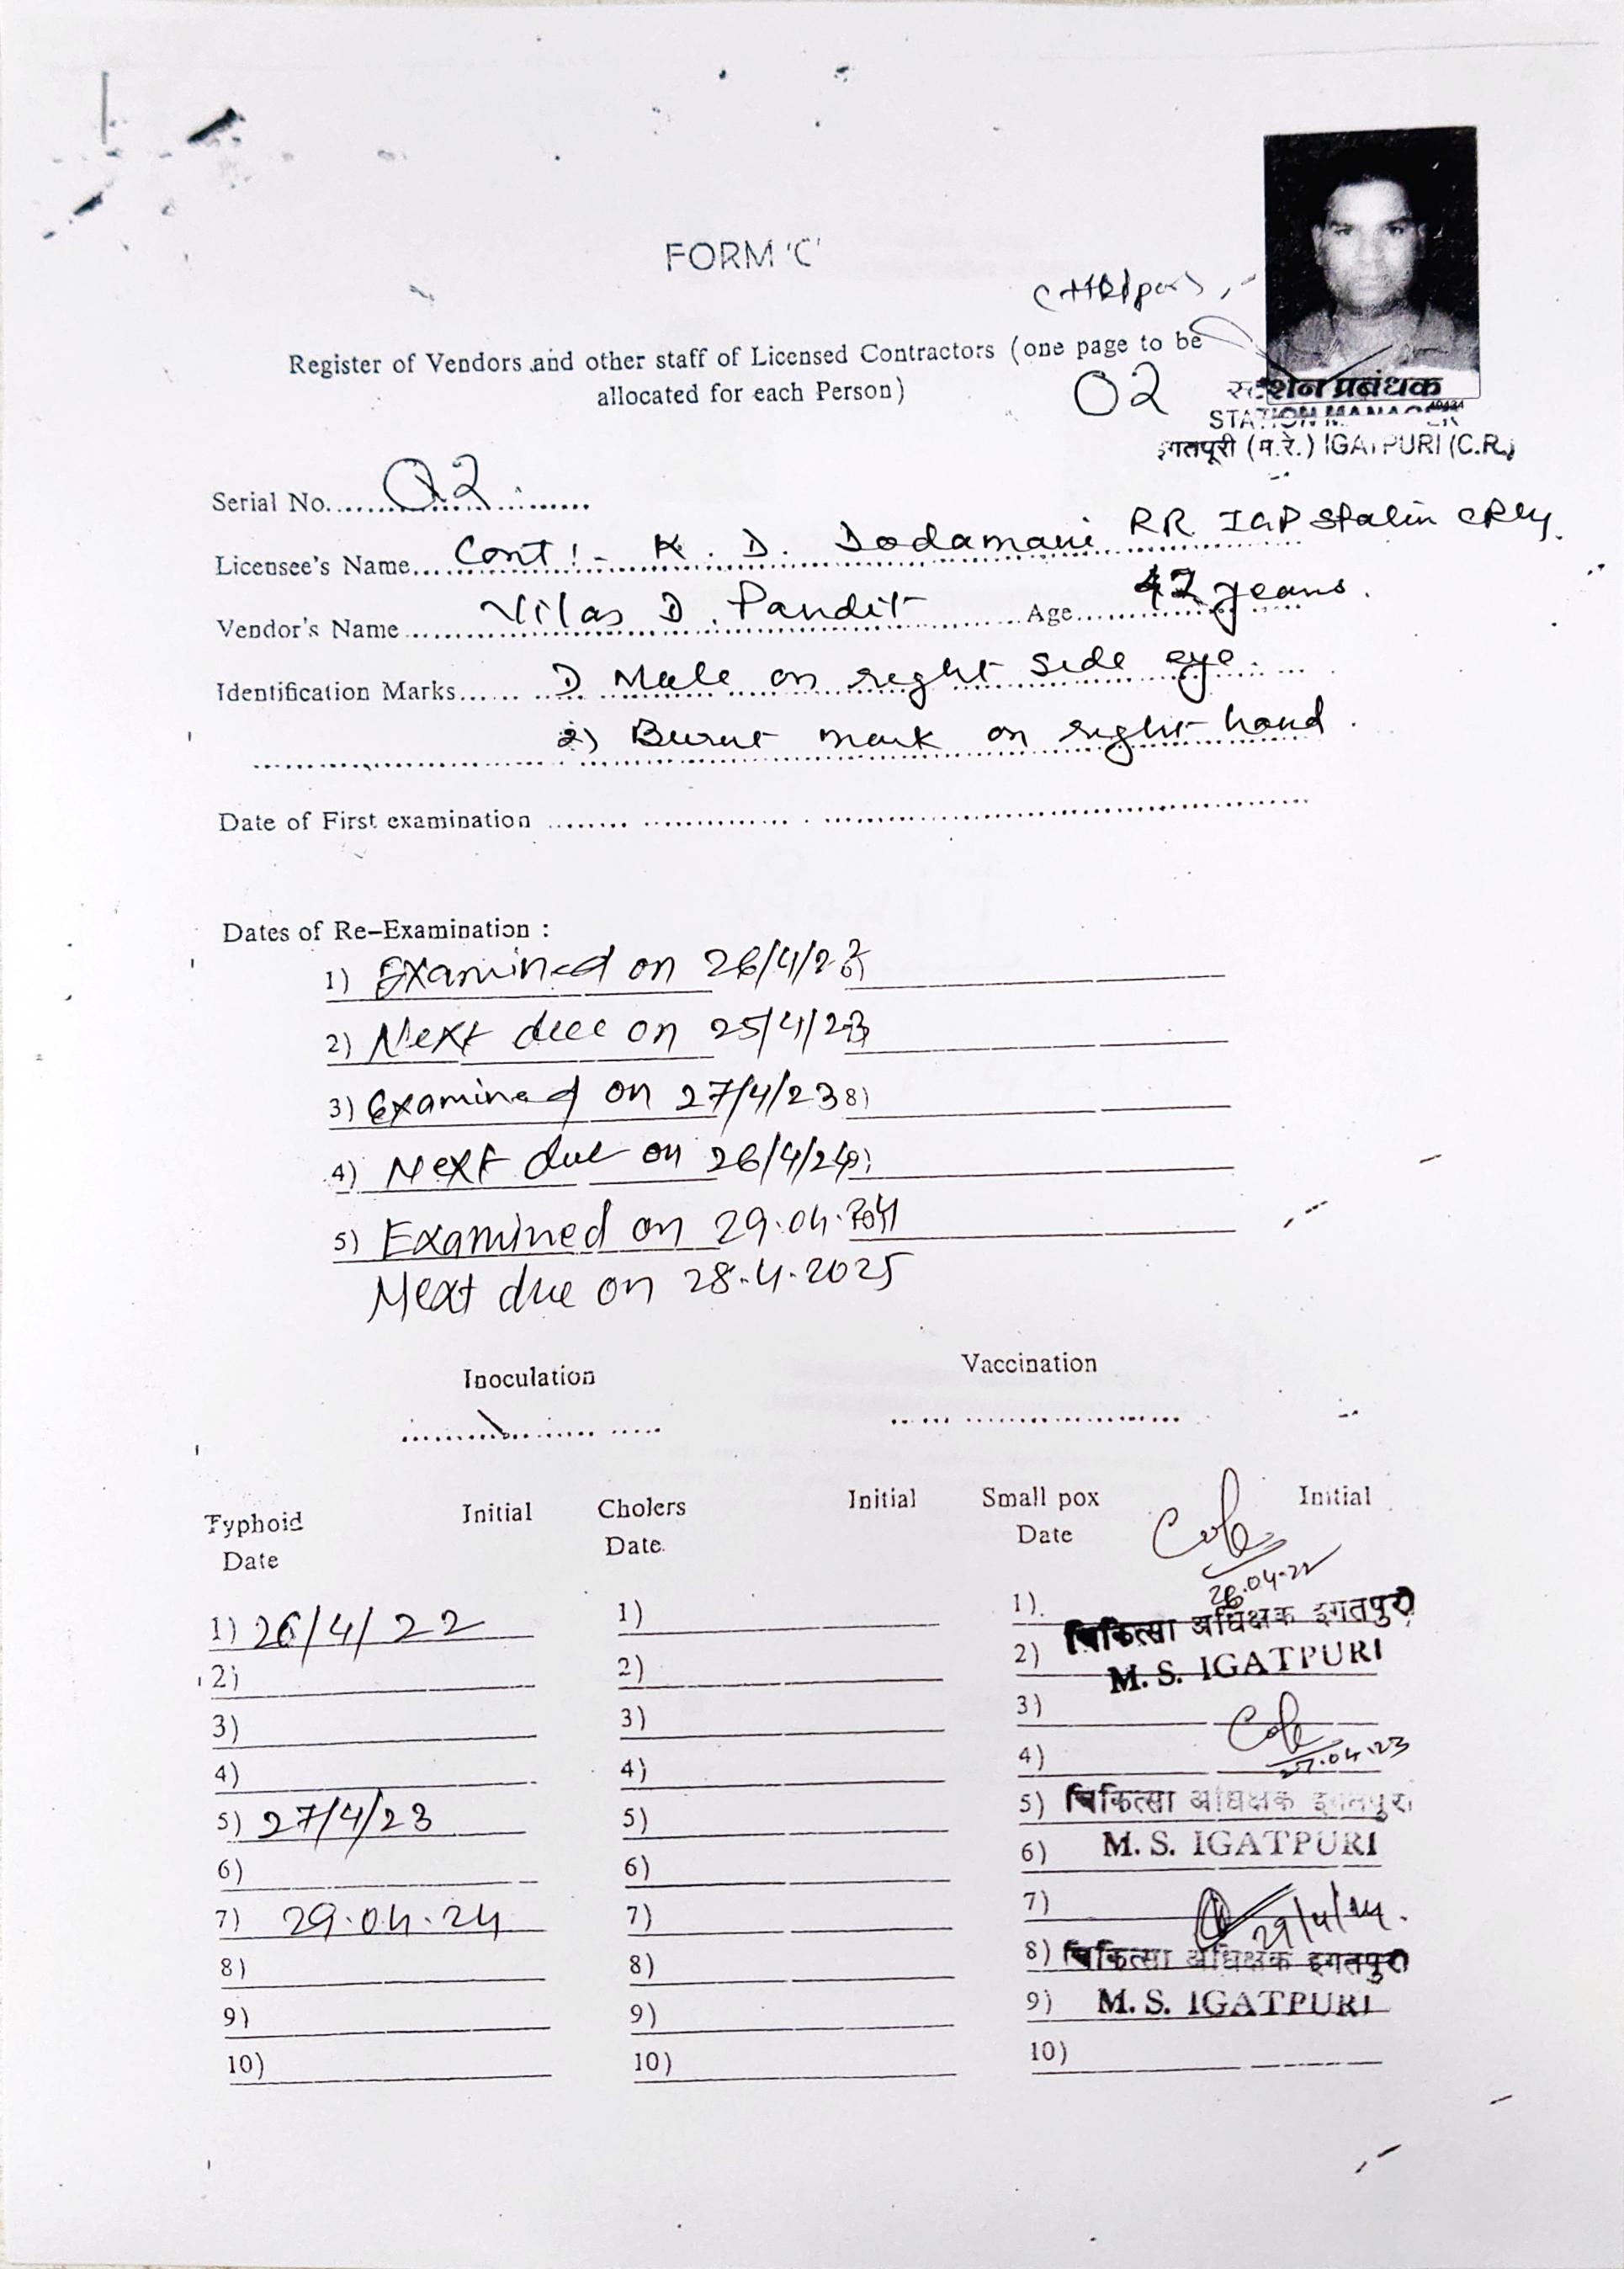 FORM 'C'
(Helper)
Register of Vendors and other staff of Licensed Contractors (one page to be
allocated for each Person)
02
स्टेशन प्रबंधक
STATION MANAGER
इगतपूरी (म.रे.) IGATPURI (C.R.)
Serial No. 02
Licensee's Name Cont :- K. D. Dodamani RR IGP Station CRly.
Vendor's Name Vilas D. Pandit Age 42 years.
Identification Marks 1) Mole on right side eye.
2) Burnt mark on right hand.
Date of First examination
Dates of Re-Examination :
1) Examined on 26/4/22
2) Next due on 25/4/23
3) Examined on 27/4/23 8)
4) Next due on 26/4/24 9)
5) Examined on 29.04.2024
Next due on 28.4.2025
Inoculation Vaccination
Typhoid Initial Cholers Initial Small pox Initial
Date Date. Date
26.04.22
1) 26/4/22 1) 1)
चिकित्सा अधिक्षक इगतपुरी
2) 2) 2) M. S. IGATPURI
3) 3) 3)
4) 4) 4) 27.04.23
5) 27/4/23 5) 5) चिकित्सा अधिक्षक इगतपुरी
6) 6) 6) M. S. IGATPURI
7) 29.04.24 7) 7) 29/4/24.
8) 8) 8) चिकित्सा अधिक्षक इगतपुरी
9) 9) 9) M. S. IGATPURI
10) 10) 10)